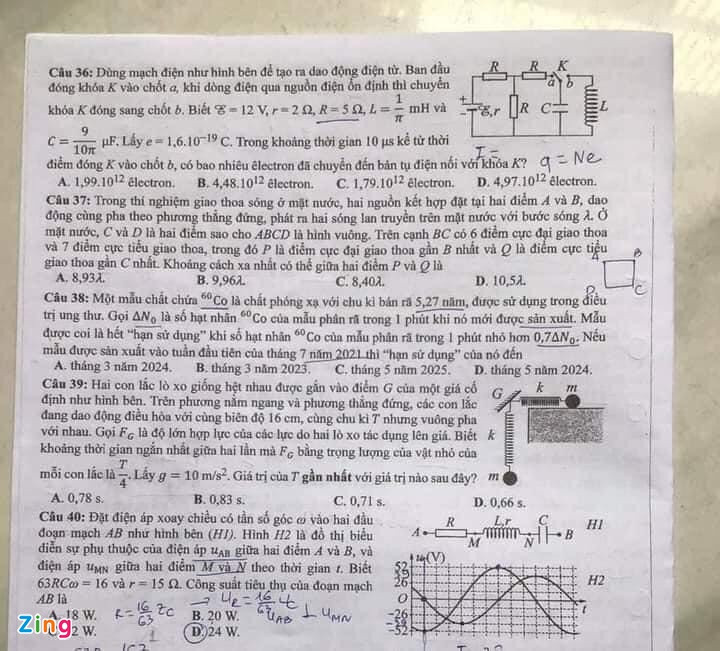 Câu 36: Dùng mạch điện như hình bên để tạo ra dao động điện từ. Ban đầu
đóng khóa K vào chốt a, khi dòng điện qua nguồn điện ổn định thì chuyển
khóa K đóng sang chốt b. Biết ℰ = 12 V, r = 2 Ω, R = 5 Ω, L = 1/π mH và
C = 9/10π μF. Lấy e = 1,6.10⁻¹⁹ C. Trong khoảng thời gian 10 μs kể từ thời
điểm đóng K vào chốt b, có bao nhiêu êlectron đã chuyển đến bản tụ điện nối với khóa K?
A. 1,99.10¹² êlectron. B. 4,48.10¹² êlectron. C. 1,79.10¹² êlectron. D. 4,97.10¹² êlectron.
R R K
a b
+ − ℰ,r R C L
I =
q = Ne
Câu 37: Trong thí nghiệm giao thoa sóng ở mặt nước, hai nguồn kết hợp đặt tại hai điểm A và B, dao
động cùng pha theo phương thẳng đứng, phát ra hai sóng lan truyền trên mặt nước với bước sóng λ. Ở
mặt nước, C và D là hai điểm sao cho ABCD là hình vuông. Trên cạnh BC có 6 điểm cực đại giao thoa
và 7 điểm cực tiểu giao thoa, trong đó P là điểm cực đại giao thoa gần B nhất và Q là điểm cực tiểu
giao thoa gần C nhất. Khoảng cách xa nhất có thể giữa hai điểm P và Q là
A. 8,93λ. B. 9,96λ. C. 8,40λ. D. 10,5λ.
A B
D C
Câu 38: Một mẫu chất chứa ⁶⁰Co là chất phóng xạ với chu kì bán rã 5,27 năm, được sử dụng trong điều
trị ung thư. Gọi ΔN₀ là số hạt nhân ⁶⁰Co của mẫu phân rã trong 1 phút khi nó mới được sản xuất. Mẫu
được coi là hết “hạn sử dụng” khi số hạt nhân ⁶⁰Co của mẫu phân rã trong 1 phút nhỏ hơn 0,7ΔN₀. Nếu
mẫu được sản xuất vào tuần đầu tiên của tháng 7 năm 2021 thì “hạn sử dụng” của nó đến
A. tháng 3 năm 2024. B. tháng 3 năm 2023. C. tháng 5 năm 2025. D. tháng 5 năm 2024.
Câu 39: Hai con lắc lò xo giống hệt nhau được gắn vào điểm G của một giá cố
định như hình bên. Trên phương nằm ngang và phương thẳng đứng, các con lắc
đang dao động điều hòa với cùng biên độ 16 cm, cùng chu kì T nhưng vuông pha
với nhau. Gọi F_G là độ lớn hợp lực của các lực do hai lò xo tác dụng lên giá. Biết
khoảng thời gian ngắn nhất giữa hai lần mà F_G bằng trọng lượng của vật nhỏ của
mỗi con lắc là T/4. Lấy g = 10 m/s². Giá trị của T gần nhất với giá trị nào sau đây?
A. 0,78 s. B. 0,83 s. C. 0,71 s. D. 0,66 s.
G k m
k
m
Câu 40: Đặt điện áp xoay chiều có tần số góc ω vào hai đầu
đoạn mạch AB như hình bên (H1). Hình H2 là đồ thị biểu
diễn sự phụ thuộc của điện áp u_AB giữa hai điểm A và B, và
điện áp u_MN giữa hai điểm M và N theo thời gian t. Biết
63RCω = 16 và r = 15 Ω. Công suất tiêu thụ của đoạn mạch
AB là
A. 18 W. B. 20 W.
2 W. D. 24 W.
R L,r C H1
A M N B
u(V)
52
26
O t
−26
−52
H2
R = 16/63 Zc → U_R = 16/63 Uc
u_AB ⊥ u_MN
Zing